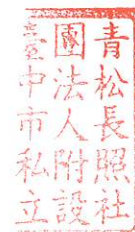 青松長照社
團法人附設
臺中市私立